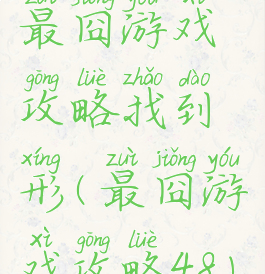 zuì jiǒng yóu xì
最囧游戏
gōng lüè zhǎo dào
攻略找到
xíng zuì jiǒng yóu
形(最囧游
xì gōng lüè
戏攻略48)